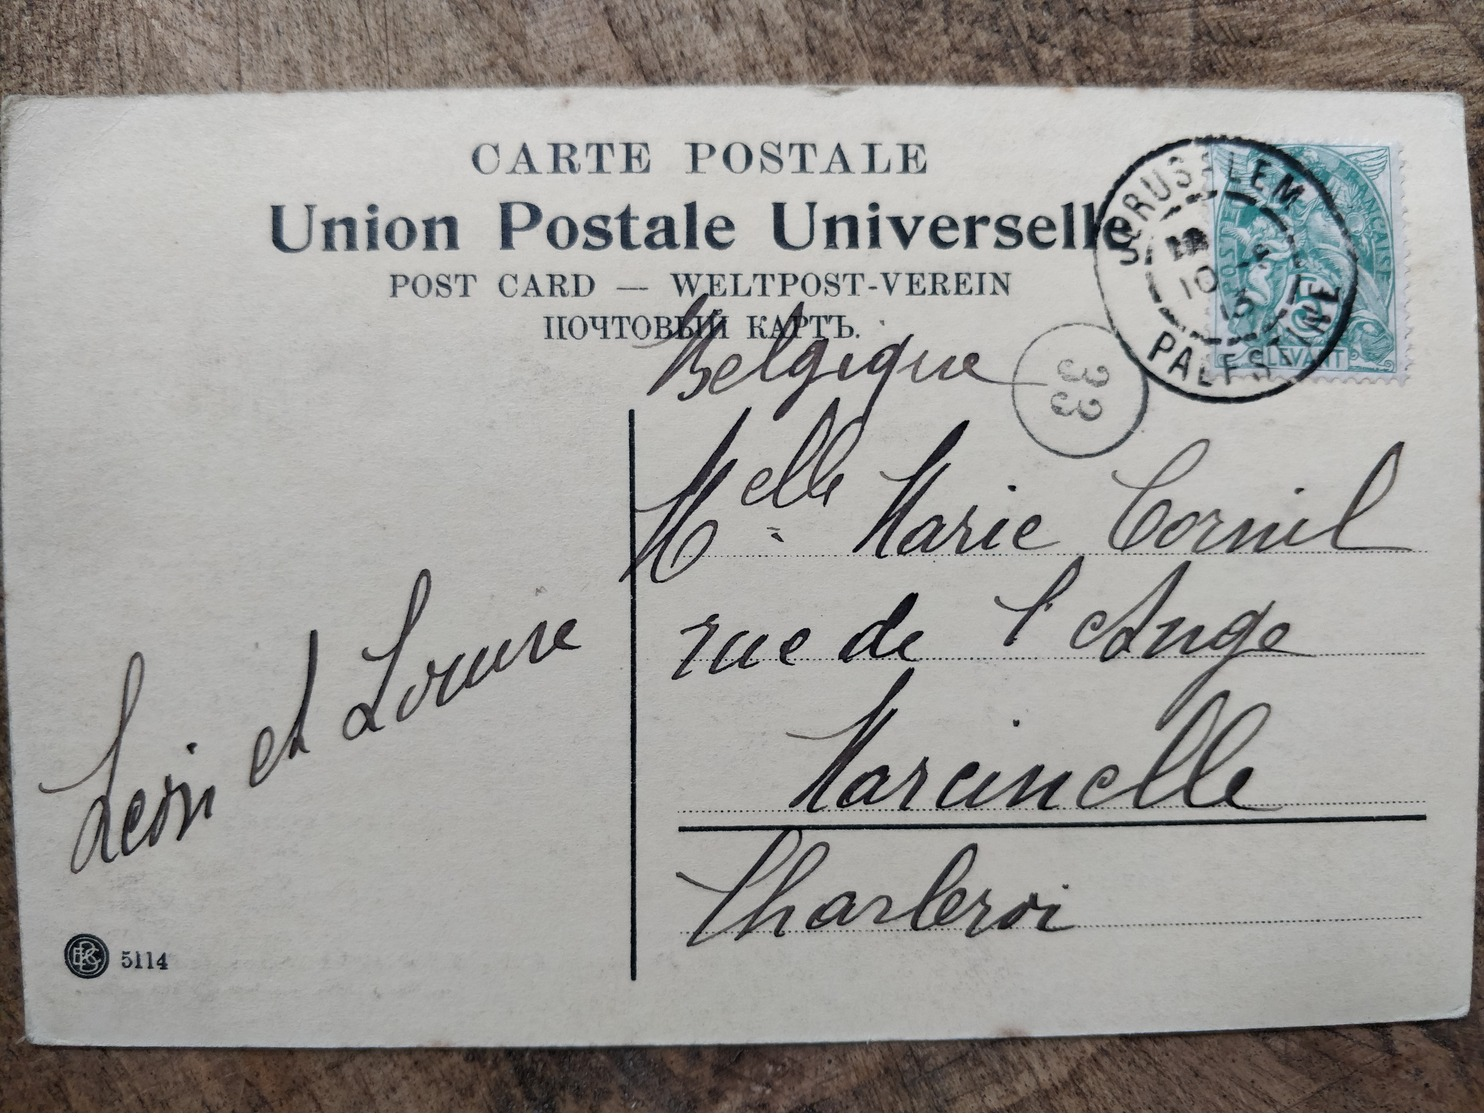 CARTE POSTALE
Union Postale Universelle
POST CARD — WELTPOST-VEREIN
ПОЧТОВЫЙ КАРТЪ.
JERUSALEM
10
PALESTINE
POSTE FRANÇAISE
5
LEVANT
33
Belgique
Melle Marie Cornil
rue de l'Ange
Marcinelle
Charleroi
Léon et Louise
5114